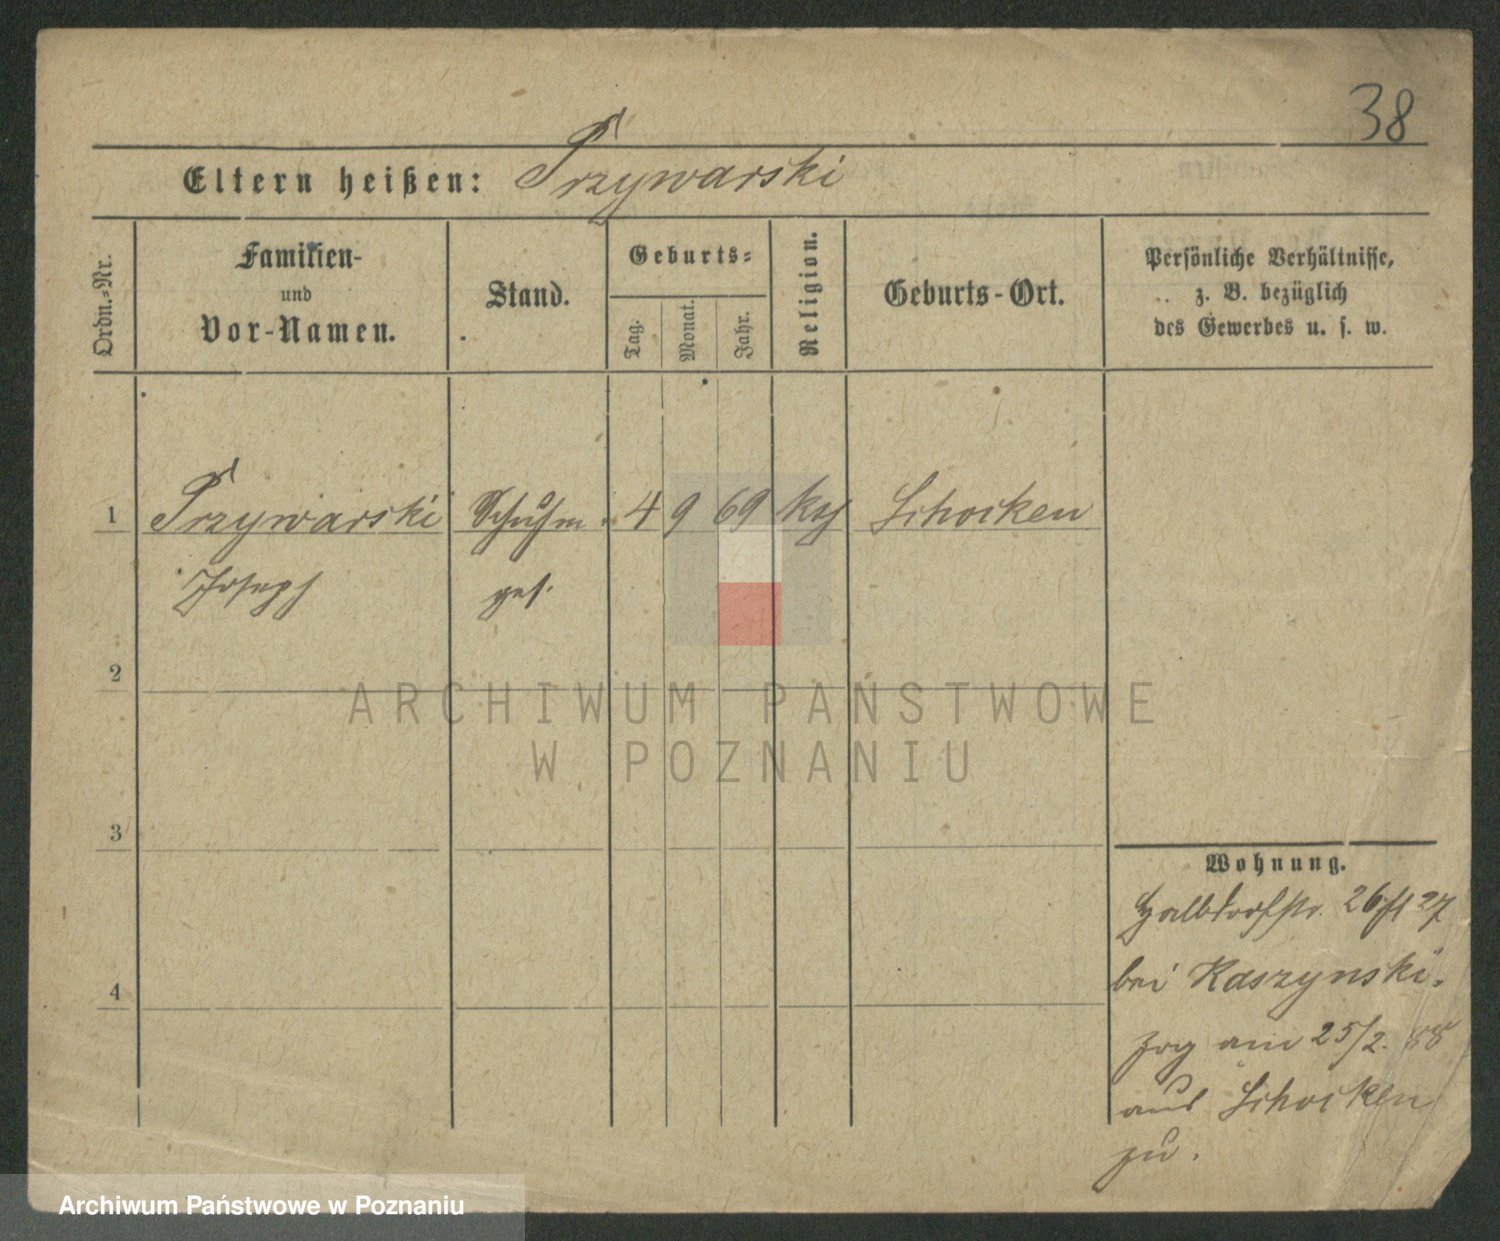 38
Eltern heißen: Przywarski
Ordn.-Nr.
Familien-
und
Vor-Namen.
Stand.
Geburts-
Tag.
Monat.
Jahr.
Religion.
Geburts-Ort.
Persönliche Verhältnisse,
z. B. bezüglich
des Gewerbes u. s. w.
1 Przywarski Schuhm 4 9 69 Schocken
Joseph ges.
2
ARCHIWUM PAŃSTWOWE
W POZNANIU
3
4
Wohnung.
Halbdorfstr. 26 27
bei Kaszynski.
zog am 25/2. 88
aus Schocken
zu.
Archiwum Państwowe w Poznaniu